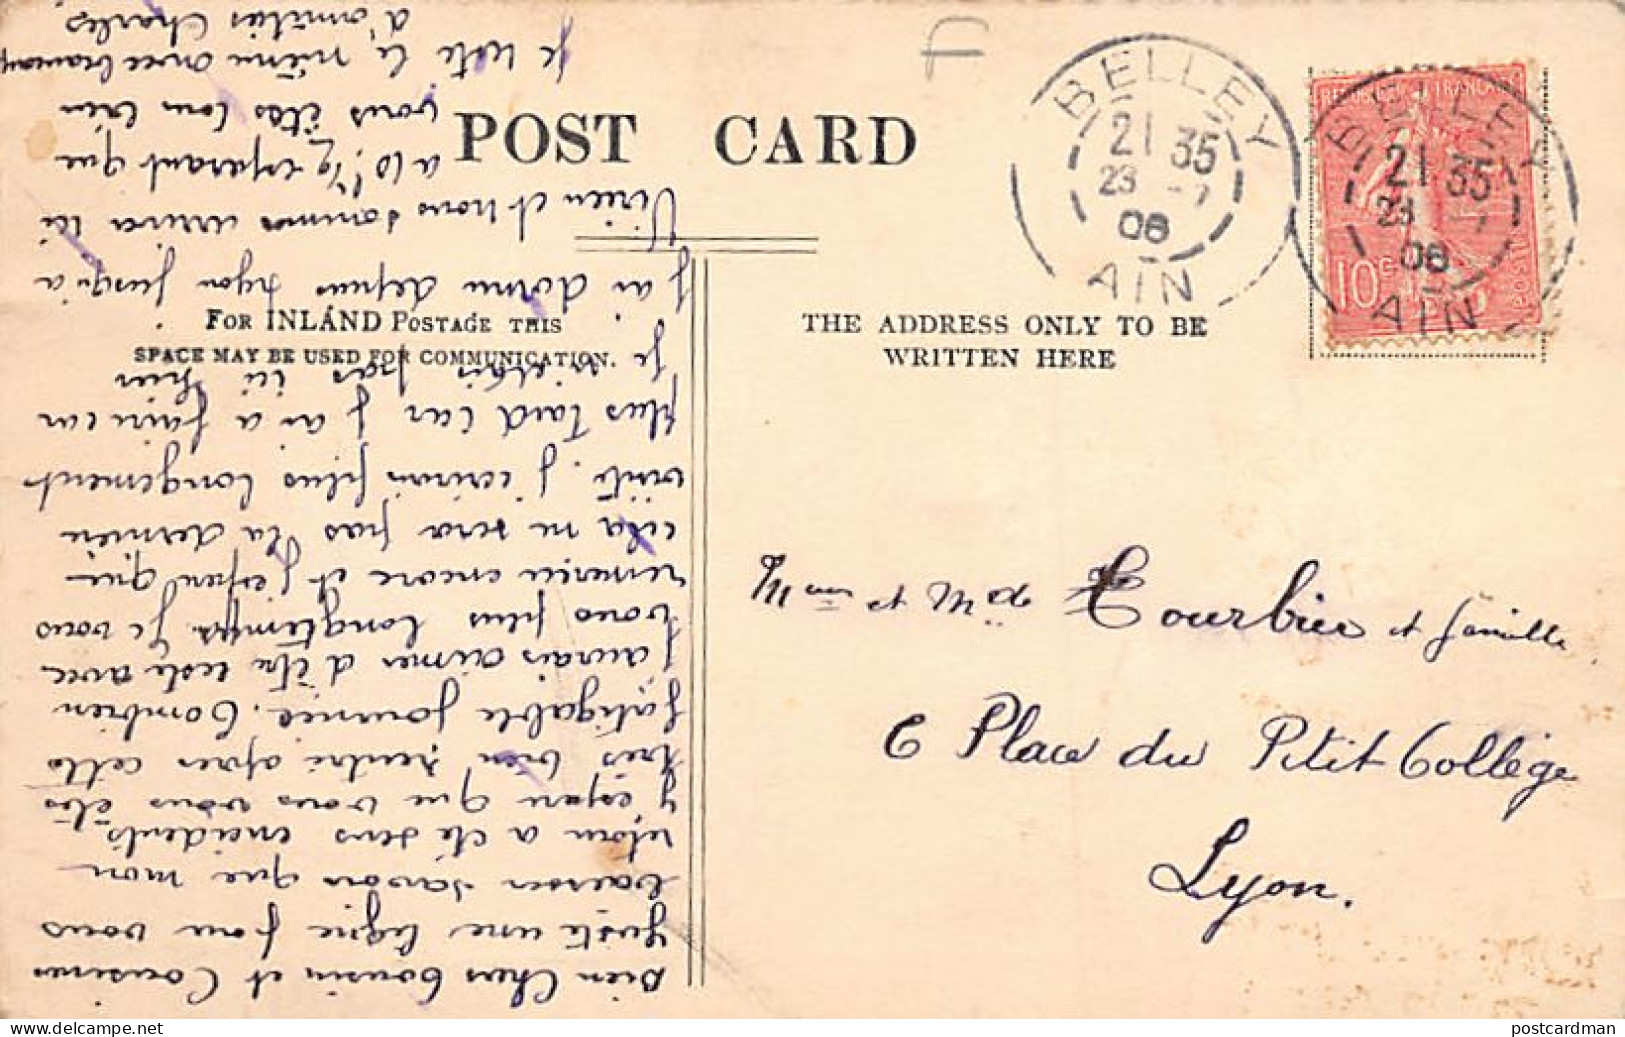 POST CARD
FOR INLAND POSTAGE THIS
SPACE MAY BE USED FOR COMMUNICATION.
THE ADDRESS ONLY TO BE
WRITTEN HERE
BELLEY
21 35
23 -7
08
AIN
BELLEY
21 35
23 -7
08
AIN
REPUBLIQUE FRANÇAISE
10c
POSTES
et Mde Courbier et famille
6 Place du Petit Collège
Lyon.
Bien Chers Cousin et Cousines
Juste une ligne pour vous
savoir que mon
retour a été sans incidents.
J'espère que vous vous êtes
très bien rendu après cette
fatigable journée. Combien
j'aurais aimer d'être resté avec
vous plus longtemps. Je vous
remercie encore et j'espère que
cela ne sera pas la dernière
visite. J'écrirai plus longement
plus tard car j'ai à faire car
Je n'étais pas ici hier
J'ai dormi depuis Lyon jusqu'à
Virieu et nous sommes arrivé ici
à 10 h 1/2 espérant que
vous êtes tous bien
Je reste le même avec beaucoup
d'amitiés Charles
postcardman